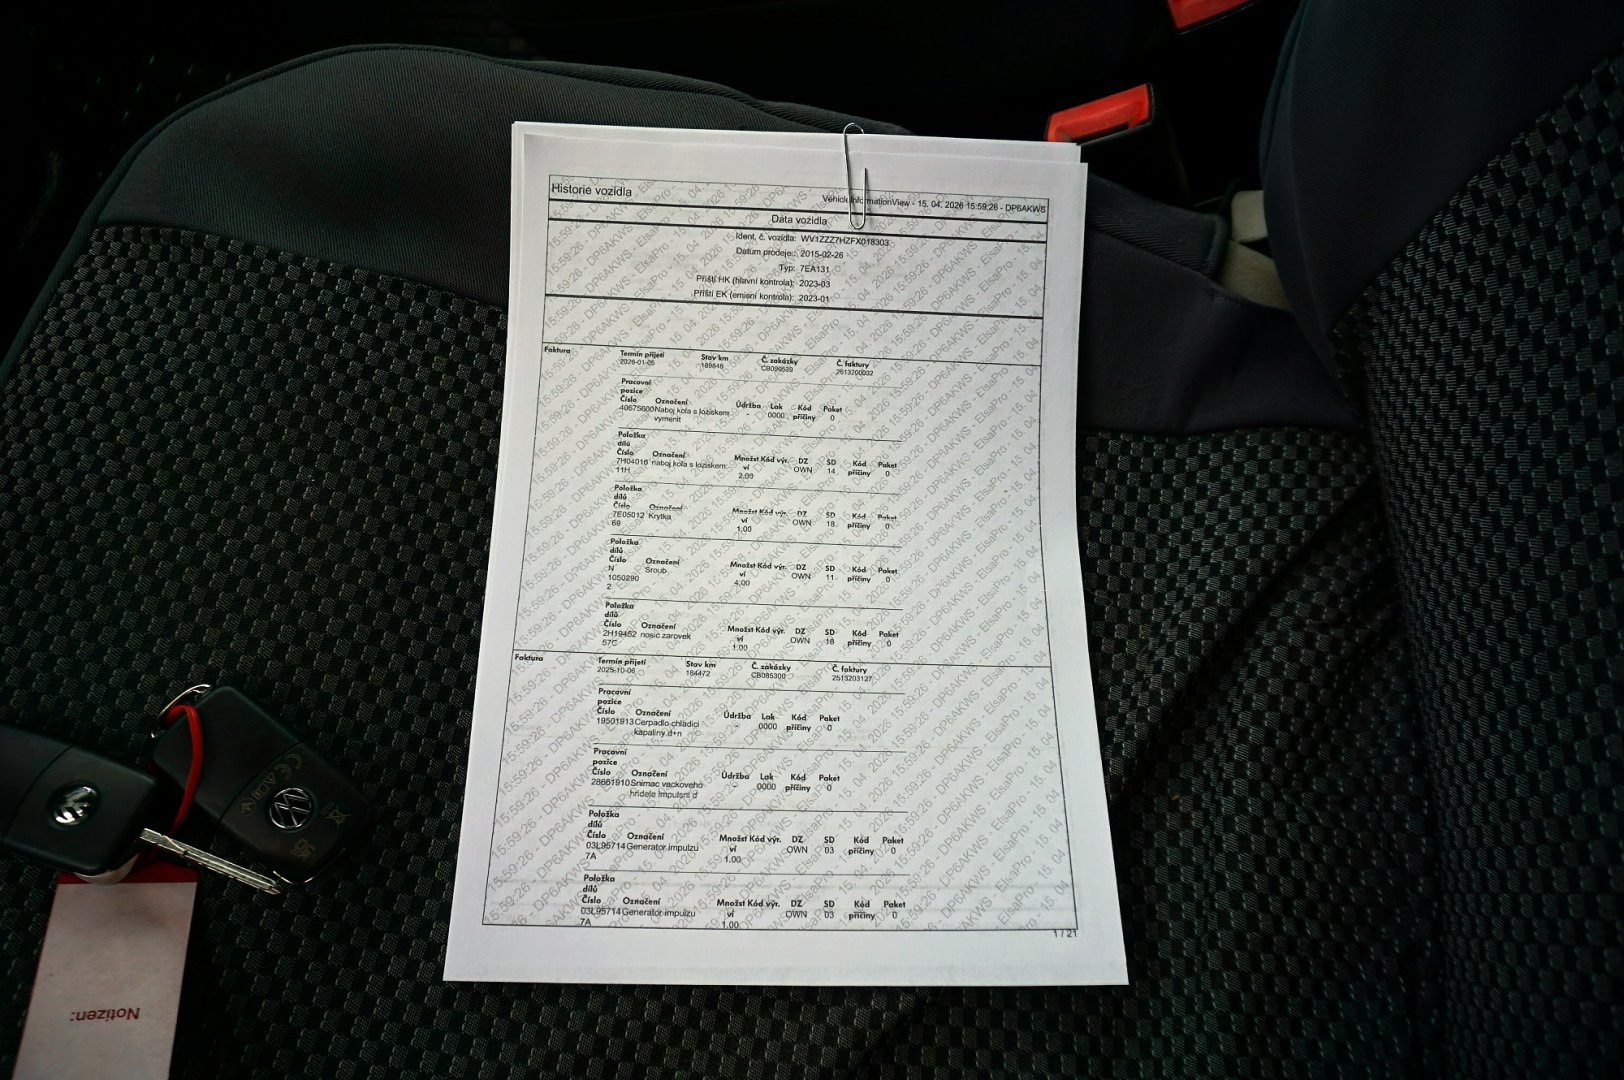 Historie vozidla
VehicleInformationView - 15. 04. 2026 15:59:26 - DP6AKWS
Data vozidla
Ident. č. vozidla: WV1ZZZ7HZFX018303
Datum prodeje:: 2015-02-26
Typ: 7EA131
Příští HK (hlavní kontrola): 2023-03
Příští EK (emisní kontrola): 2023-01
Faktura Termín přijetí Stav km Č. zakázky Č. faktury
2026-01-05 189846 CB090539 2613200032
Pracovní
pozice
Číslo Označení Údržba Lak Kód Paket
40675600 Naboj kola s loziskem - 0000 příčiny 0
vymenit
Položka
dílů
Číslo Označení Množst Kód výr. DZ SD Kód Paket
7H04016 naboj kola s loziskem ví OWN 14 příčiny 0
11H 2.00
Položka
dílů
Číslo Označení Množst Kód výr. DZ SD Kód Paket
7E05012 Krytka ví OWN 18 příčiny 0
69 1.00
Položka
dílů
Číslo Označení Množst Kód výr. DZ SD Kód Paket
N Sroub ví OWN 11 příčiny 0
1050290 4.00
2
Položka
dílů
Číslo Označení Množst Kód výr. DZ SD Kód Paket
2H19452 nosic zarovek ví OWN 18 příčiny 0
57C 1.00
Faktura Termín přijetí Stav km Č. zakázky Č. faktury
2025-10-06 184472 CB085300 2513203127
Pracovní
pozice
Číslo Označení Údržba Lak Kód Paket
19501913 Cerpadlo chladici - 0000 příčiny 0
kapaliny d+n
Pracovní
pozice
Číslo Označení Údržba Lak Kód Paket
28661910 Snimac vackoveho - 0000 příčiny 0
hridele impulsni d
Položka
dílů
Číslo Označení Množst Kód výr. DZ SD Kód Paket
03L95714 Generator impulzu ví OWN 03 příčiny 0
7A 1.00
Položka
dílů
Číslo Označení Množst Kód výr. DZ SD Kód Paket
03L95714 Generator impulzu ví OWN 03 příčiny 0
7A 1.00
1 / 21
Notizen: